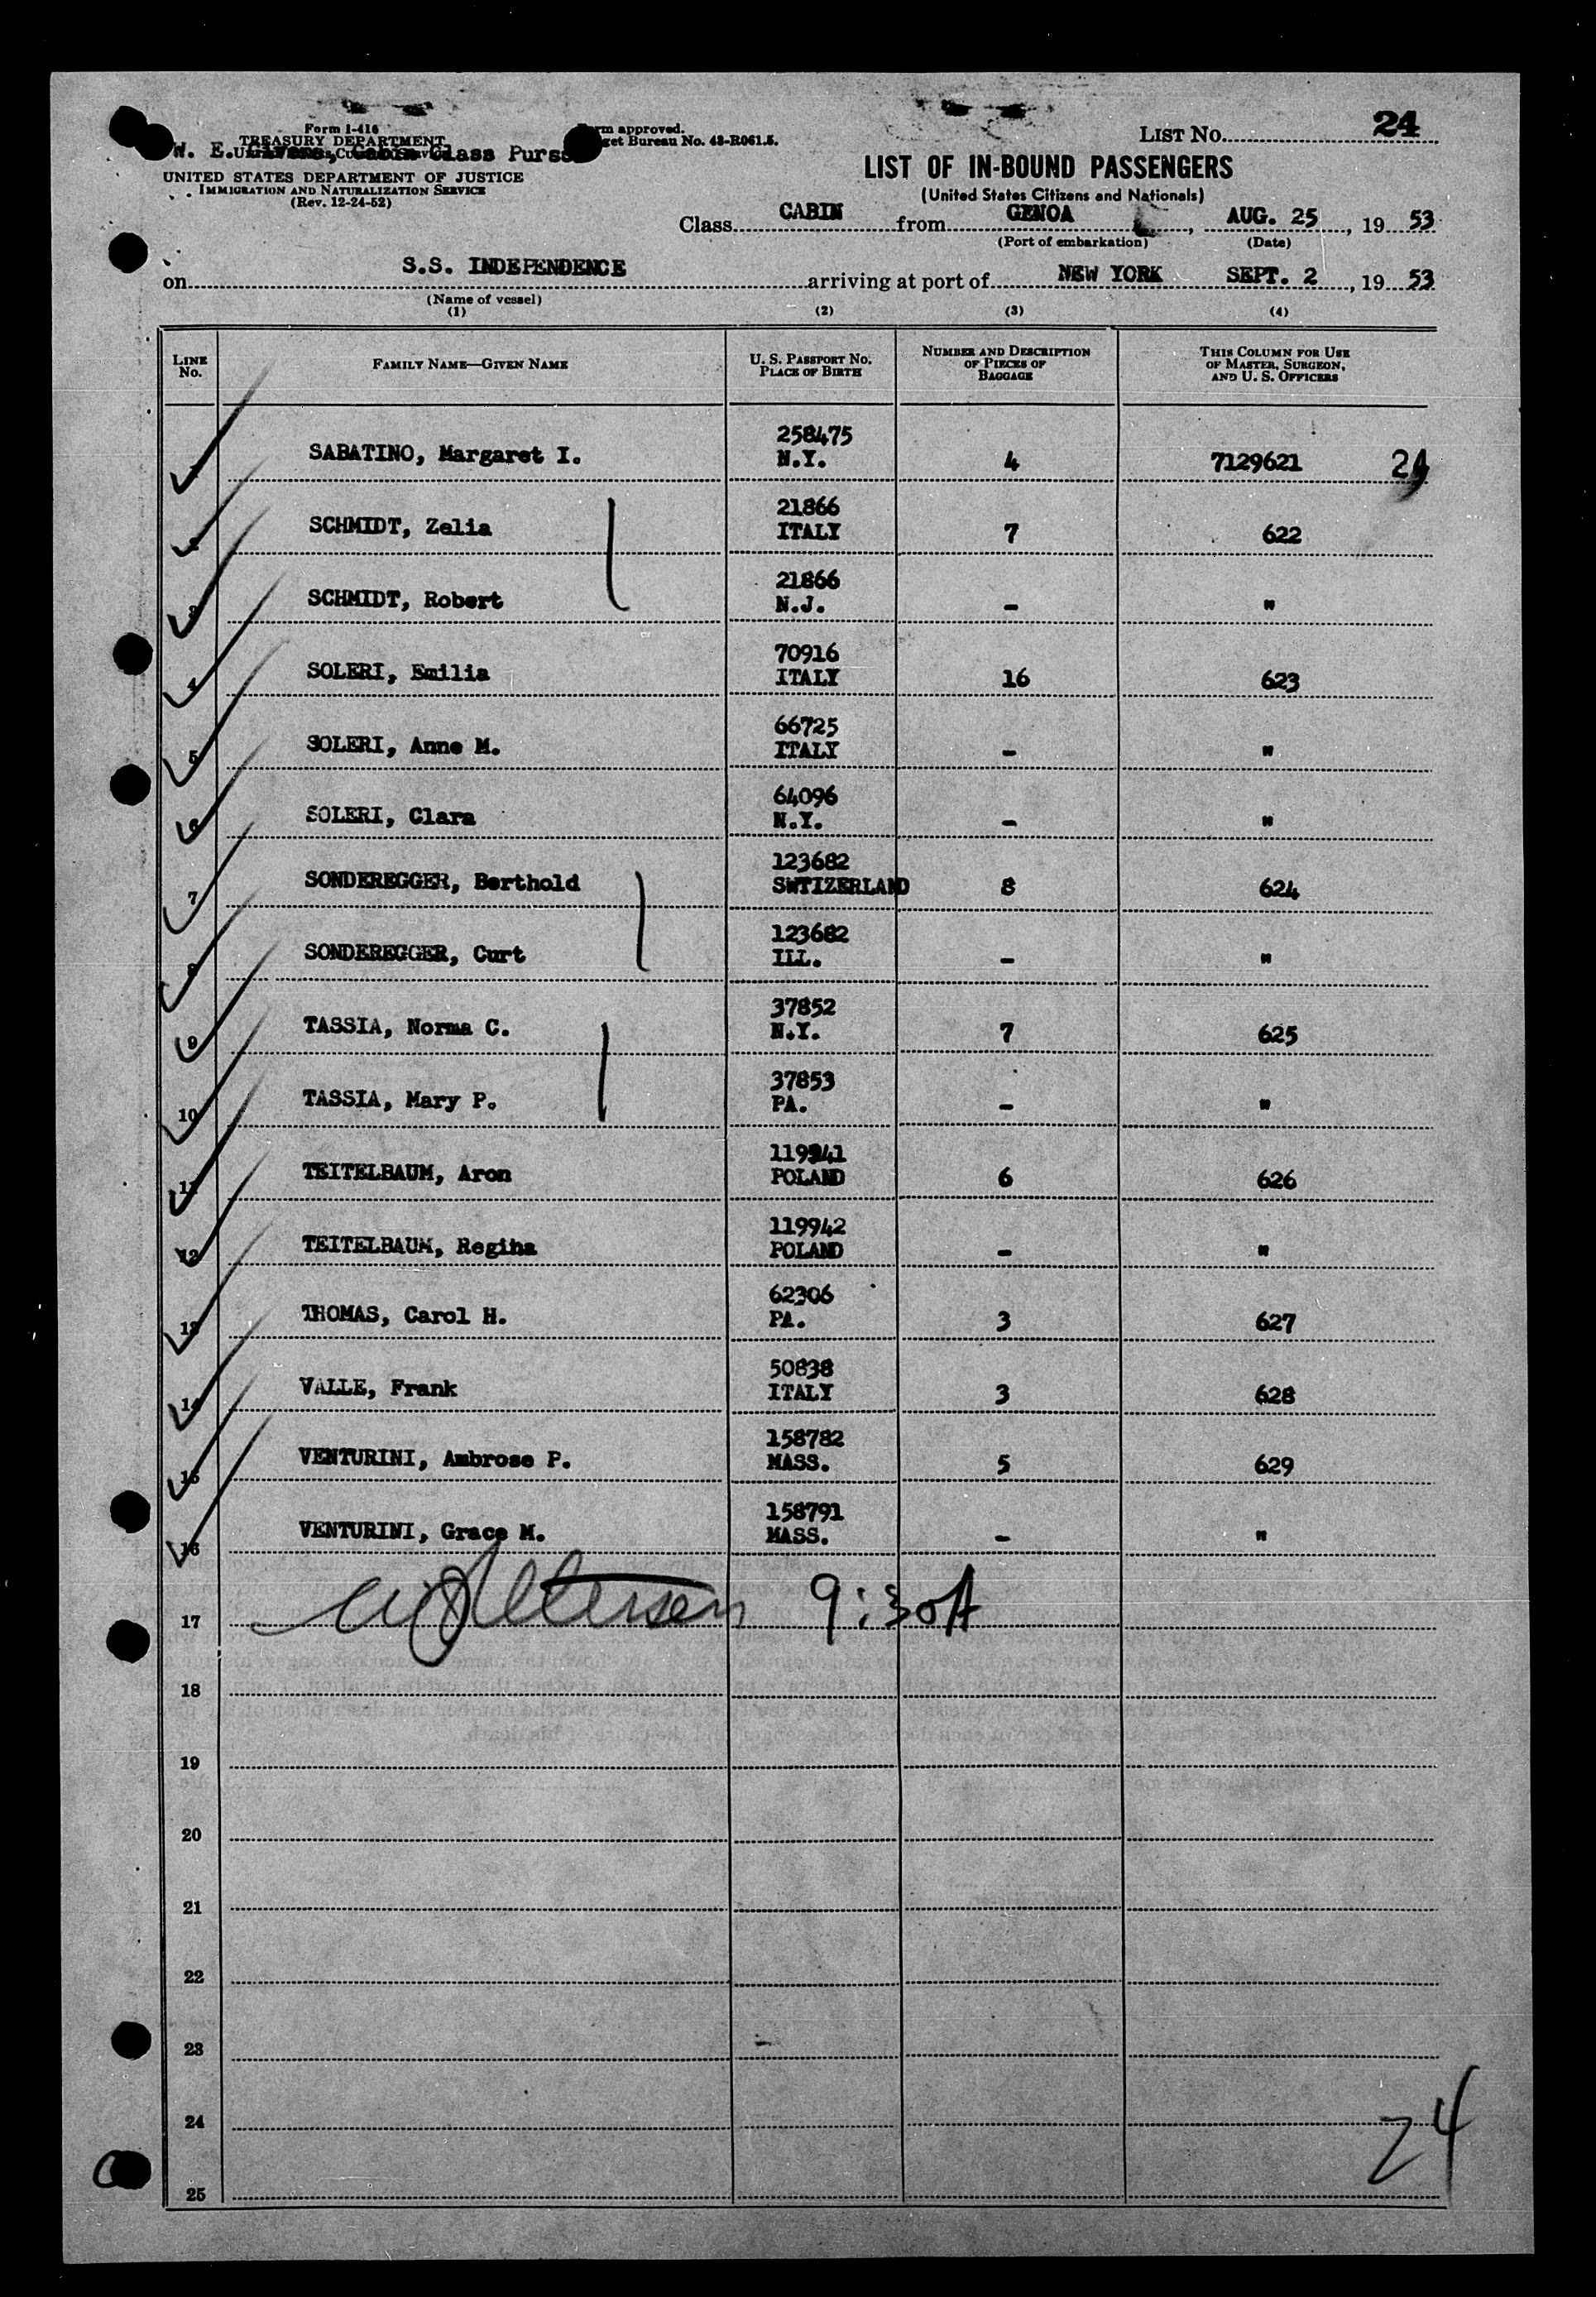 Form I-416
TREASURY DEPARTMENT
W. E. Cabin Class Purs
UNITED STATES DEPARTMENT OF JUSTICE
IMMIGRATION AND NATURALIZATION SERVICE
(Rev. 12-24-52)
approved.
Bureau No. 43-R061.5.
LIST No. 24
LIST OF IN-BOUND PASSENGERS
(United States Citizens and Nationals)
Class CABIN from GENOA, AUG. 25, 19 53
(Port of embarkation) (Date)
on S.S. INDEPENDENCE arriving at port of NEW YORK SEPT. 2, 19 53
(Name of vessel)
(1) (2) (3) (4)
LINE No.
FAMILY NAME—GIVEN NAME
U. S. PASSPORT No. PLACE OF BIRTH
NUMBER AND DESCRIPTION OF PIECES OF BAGGAGE
THIS COLUMN FOR USE OF MASTER, SURGEON, AND U. S. OFFICERS
SABATINO, Margaret I. 258475 N.Y. 4 7129621
2 SCHMIDT, Zelia 21866 ITALY 7 622
3 SCHMIDT, Robert 21866 N.J. - "
4 SOLERI, Emilia 70916 ITALY 16 623
5 SOLERI, Anne M. 66725 ITALY - "
6 SOLERI, Clara 64096 N.Y. - "
7 SONDEREGGER, Berthold 123682 SWTIZERLAND 8 624
8 SONDEREGGER, Curt 123682 ILL. - "
9 TASSIA, Norma C. 37852 N.Y. 7 625
10 TASSIA, Mary P. 37853 PA. - "
11 TEITELBAUM, Aron 119941 POLAND 6 626
12 TEITELBAUM, Regina 119942 POLAND - "
13 THOMAS, Carol H. 62306 PA. 3 627
14 VALLE, Frank 50838 ITALY 3 628
15 VENTURINI, Ambrose P. 158782 MASS. 5 629
16 VENTURINI, Grace M. 158791 MASS. - "
17 9:30A
18
19
20
21
22
23
24
25
24